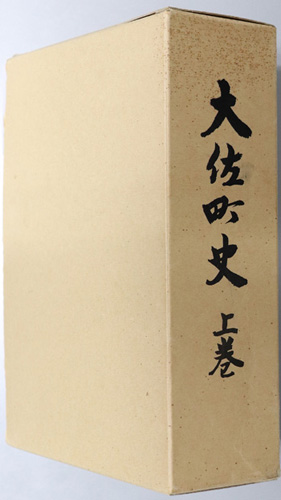 大佐町史 上巻